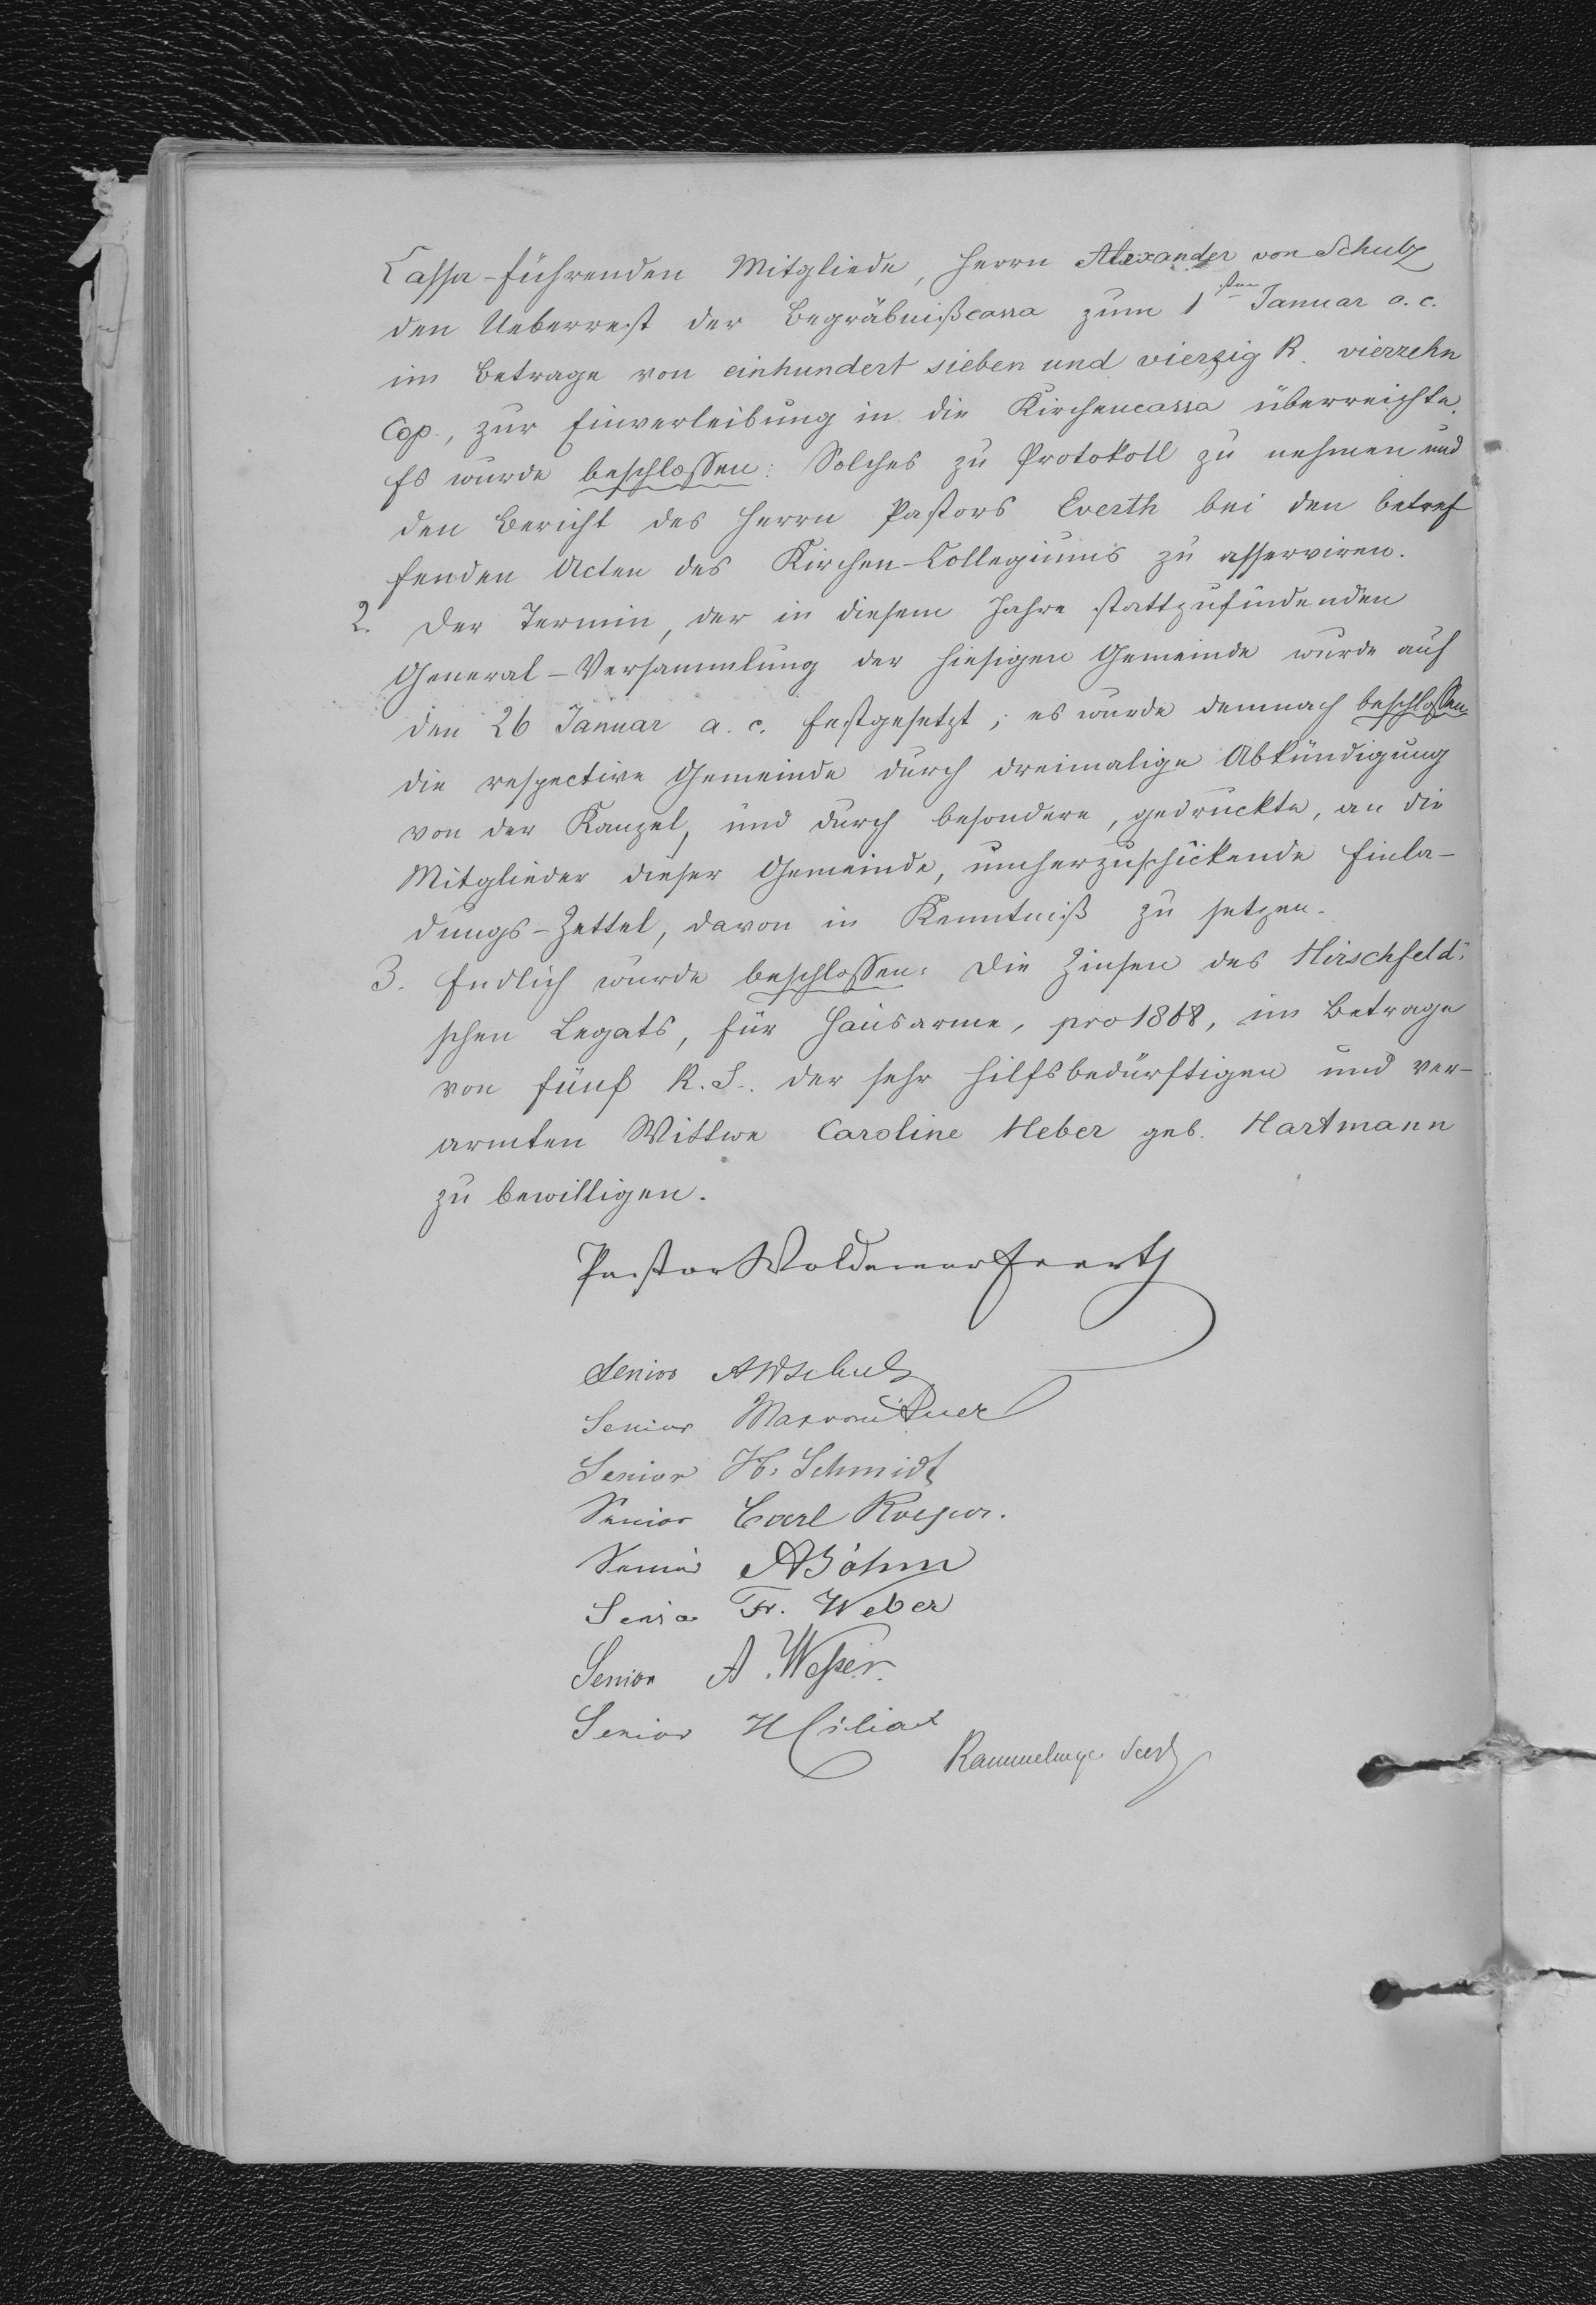 Cassa-führenden Mitgliede, Herrn Alexander von Schulz
den Ueberrest der Begräbnißcassa zum 1sten Januar a. c.
im Betrage von einhundert sieben und vierzig R. vierzehn
Cop., zur Einverleibung in die Kirchencassa überreichte.
Es wurde beschlossen: Solches zu Protokoll zu nehmen und
den Bericht des Herrn Pastors Everth bei den betref
fenden Acten des Kirchen-Collegiums zu asserviren.
2. Der Termin, der in diesem Jahre stattzufindenden
General-Versammlung der hiesigen Gemeinde wurde auf
den 26 Januar a. c. festgesetzt; es wurde demnach beschlossen
die respective Gemeinde durch dreimalige Abkündigung
von der Kanzel, und durch besondere, gedruckte, an die
Mitglieder dieser Gemeinde, umherzuschickende Einla-
dungs-Zettel, davon in Kenntniß zu setzen.
3. Endlich wurde beschlossen: Die Zinsen des Hirschfeld-
schen Legats, für Hausarme, pro 1868, im Betrage
von fünf R. S. der sehr hilfsbedürftigen und ver-
armten Wittwe Caroline Heber geb. Hartmann
zu bewilligen.
Pastor Woldemar Everth
Senior AvSchulz
Senior
Senior H. Schmidt
Senior Carl
Senior ABöhm
Senior Fr. Weber
Senior A. Weßer.
Senior H